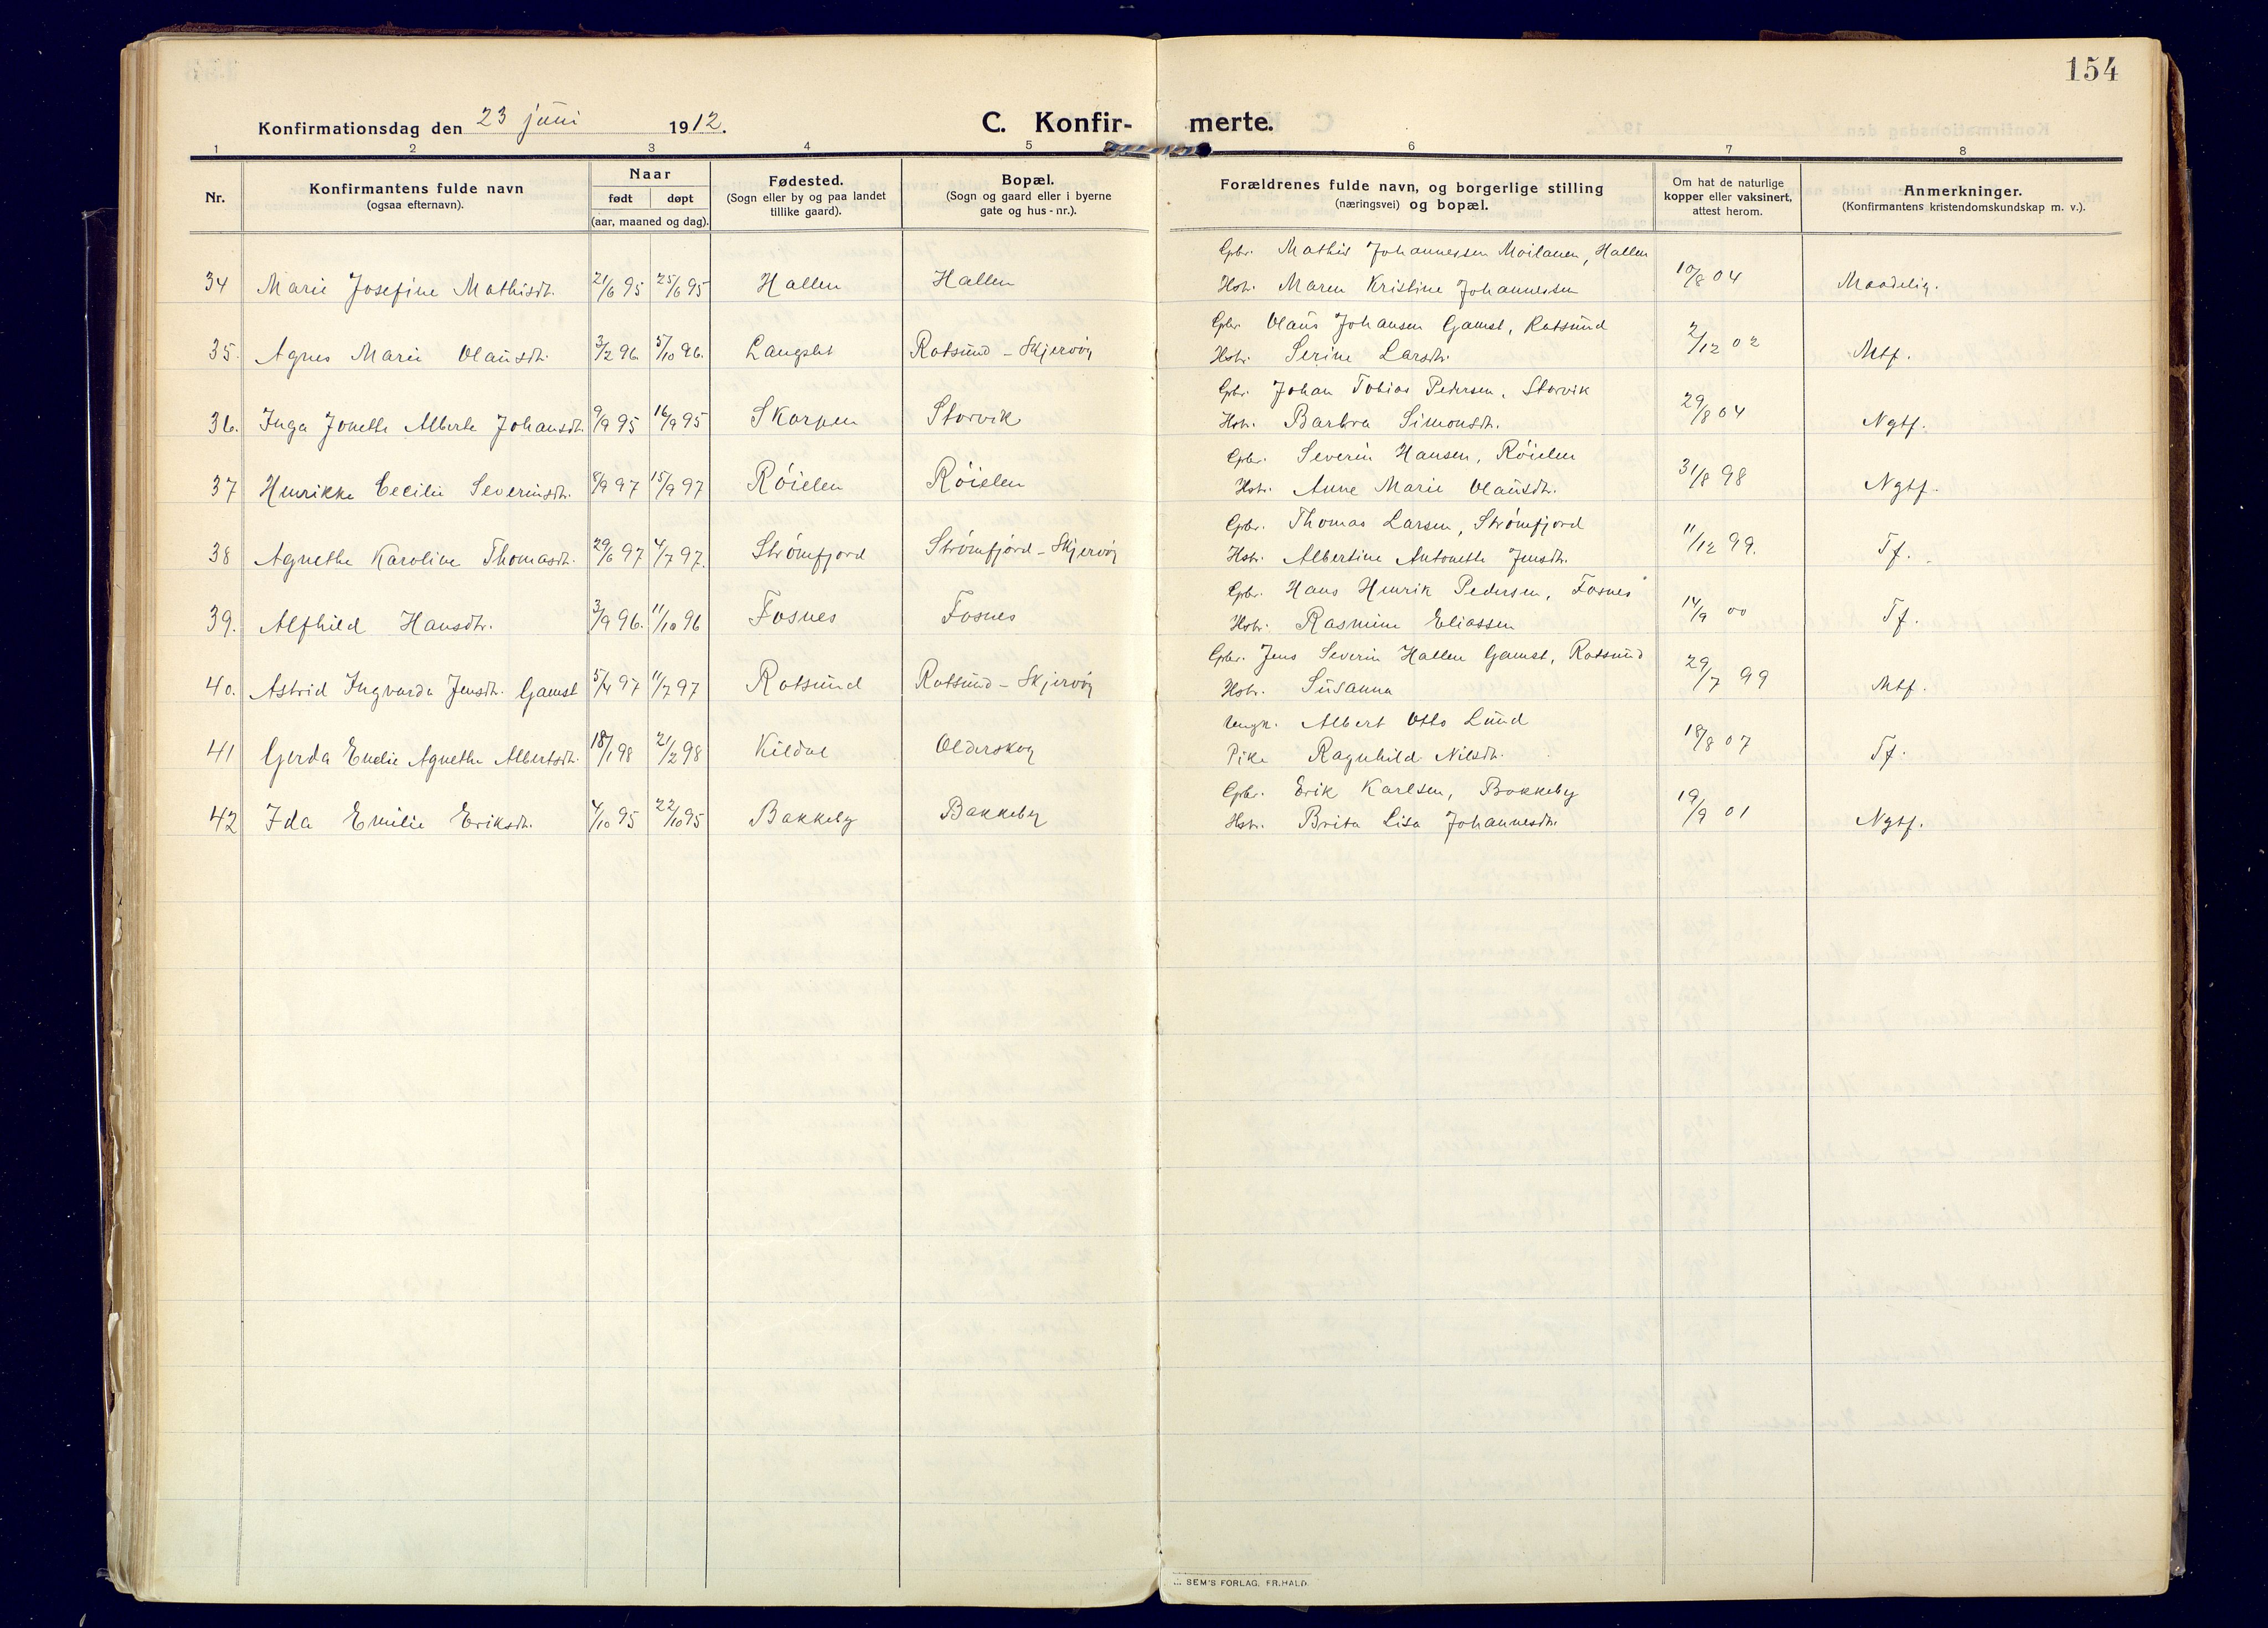 154
Konfirmationsdag den 23 juni 1912.
C. Konfir-merte.
1 2 3 4 5 6 7 8
Nr.
Konfirmantens fulde navn
(ogsaa efternavn).
Naar
født døpt
(aar, maaned og dag).
Fødested.
(Sogn eller by og paa landet
tillike gaard).
Bopæl.
(Sogn og gaard eller i byerne
gate og hus-nr.).
Forældrenes fulde navn, og borgerlige stilling
(næringsvei) og bopæl.
Om hat de naturlige
kopper eller vaksinert,
attest herom.
Anmerkninger.
(Konfirmantens kristendomskundskap m. v.).
Gbr. Mathis Johannessen Moilanen, Hallen
34 Marie Josefine Mathisdt. 21/6 95 25/6 95 Hallen Hallen Hstr. Maren Kristine Johannessen 10/8 04 Maadelig.
Gbr. Olaus Johansen Gamst, Rotsund
35. Agnes Marie Olausdt. 3/2 96. 5/10 96. Langslet Rotsund - Skjervöy Hstr. Serine Larsdtr. 2/12 02 Mtf.
Gbr. Johan Tobias Pedersen, Storvik
36. Inga Jonette Alberte Johansdt. 9/9 95 16/9 95 Skarpen Storvik Hstr. Barbra Simonsdt. 29/8 04 Ngtf.
Gbr. Severin Hansen, Röielen
37 Henrikke Cecilie Severinsdt. 8/9 97 15/9 97 Röielen Röielen Hstr. Anne Marie Olausdtr. 31/8 98 Ngtf.
Gbr. Thomas Larsen, Strømfjord
38 Agnethe Karoline Thomasdt. 29/6 97 4/7 97. Strømfjord Strømfjord - Skjervöy Hstr. Albertine Antonette Jensdt. 11/12 99. Tf.
Gbr. Hans Henrik Pedersen, Fosnes
39. Alfhild Hansdtr. 3/9 96. 11/10 96 Fosnes Fosnes Hstr. Rasmine Eliassen 14/9 00 Tf.
Gbr. Jens Severin Hallen Gamst, Rotsund
40. Astrid Ingvarda Jensdt. Gamst 5/4 97 11/7 97 Rotsund Rotsund - Skjervöy Hstr. Susanna 29/7 99 Mtf.
Ungk. Albert Otto Lund
41 Gerda Emelie Agnethe Albertsdt. 18/1 98 21/2 98 Kildal Olderskog Pike Ragnhild Nilsdt. 18/8 07 Tf.
Gbr. Erik Karlsen, Bakkeby
42 Ida Emilie Eriksdt. 4/10 95 22/10 95 Bakkeby Bakkeby Hstr. Brita Lisa Johannesdtr. 19/9 01 Ngtf.
SEM'S FORLAG, FR.HALD.